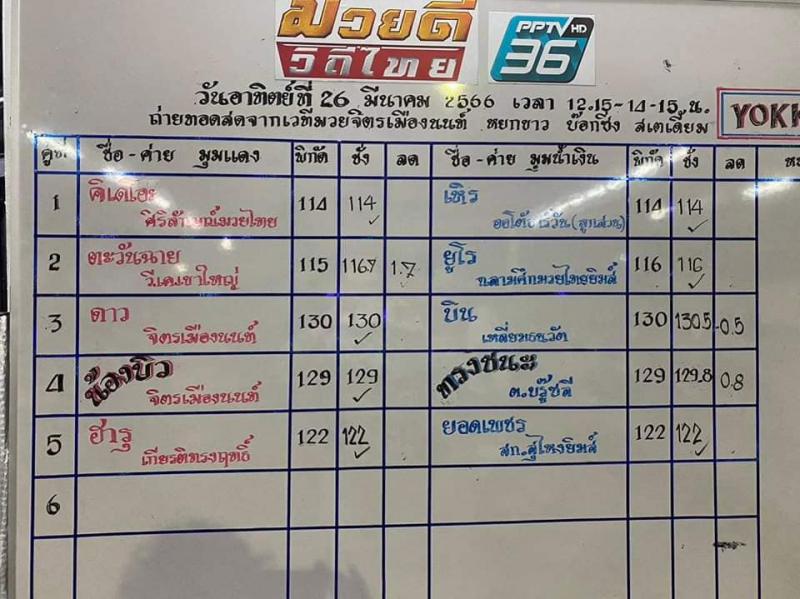 มวยดี
วิถีไทย
PPTV HD
36
วันอาทิตย์ที่ 26 มีนาคม 2566 เวลา 12.15-14-15 น.
ถ่ายทอดสดจากเวทีมวยจิตรเมืองนนท์ หยกขาว บ๊อกซิ่ง สเตเดี้ยม
YOKK
คู่ที่ ชื่อ - ค่าย มุมแดง พิกัด ชั่ง ลด ชื่อ - ค่าย มุมน้ำเงิน พิกัด ชั่ง ลด
1 114 114 ✓ เหิร 114 114 ✓
ศิริลักษณ์มวยไทย (ลูกสวน)
2 ตะวันฉาย 115 1.7 ยูโร 116 116 ✓
วี.เค.เขาใหญ่ ฉลามศึกมวยไทยยิมส์
3 ดาว 130 130 ✓ บิน 130 130.5 -0.5
จิตรเมืองนนท์ เหลี่ยมธนวัต
4 น้องบิว 129 129 ✓ ทรงชนะ 129 129.8 0.8
จิตรเมืองนนท์ ต.บรู๊ซลี
5 ฮารุ 122 122 ✓ ยอดเพชร 122 122 ✓
เกียรติทรงฤทธิ์ สก.สู้ไหงยิมส์
6